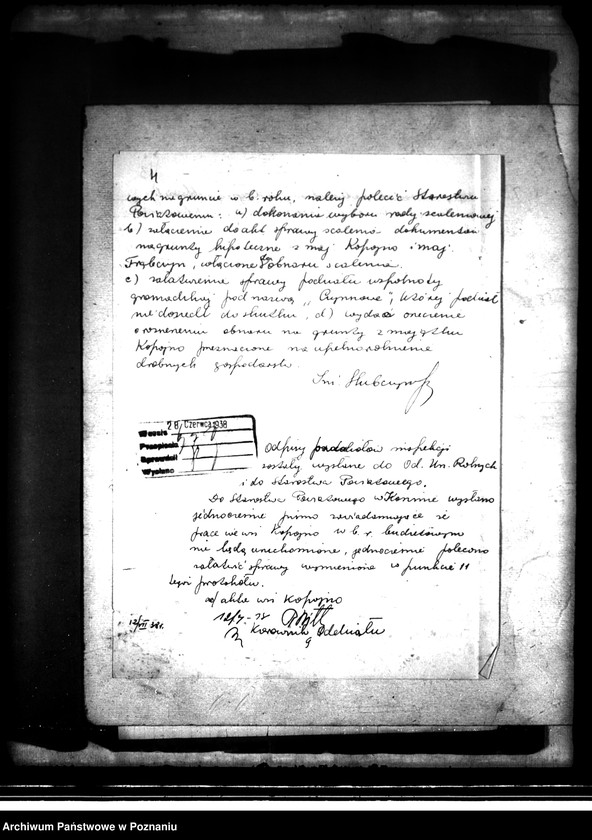 4
czych na gruncie w b. roku, należy polecić Starostwu
Powiatowemu: a) dokonanie wyboru rady scaleniowej
b) włączenie do akt sprawy scalenia dokumentów
na grunty hipoteczne z maj. Kopojno i maj.
Trąbczyn, włączone do obszaru scalenia.
c) załatwienie sprawy podziału wspólnoty
gromadzkiej pod nazwą „ ", której podział
nie doszedł do skutku, d) wydać orzeczenie
o rozszerzeniu obszaru na grunty z majątku
Kopojno przeznaczone na upełnorolnienie
drobnych gospodarstw.
Inż.
28 Czerwca 1938
Wzięto
Przepisano
Sprawdził
Wysłano
Odpisy inspekcji
zostały wysłane do Od. Un. Rolnych
i do Starostwa Powiatowego.
Do Starostwa Powiatowego w Koninie wysłano
jednocześnie pismo zawiadamiające że
prace we wsi Kopojno w b. r. budżetowym
nie będą uruchomione, jednocześnie polecono
załatwić sprawy wymienione w punkcie 11
tegoż protokołu.
a/ akta wsi Kopojno
12/VII 38 r.
Kierownik Oddziału
Archiwum Państwowe w Poznaniu